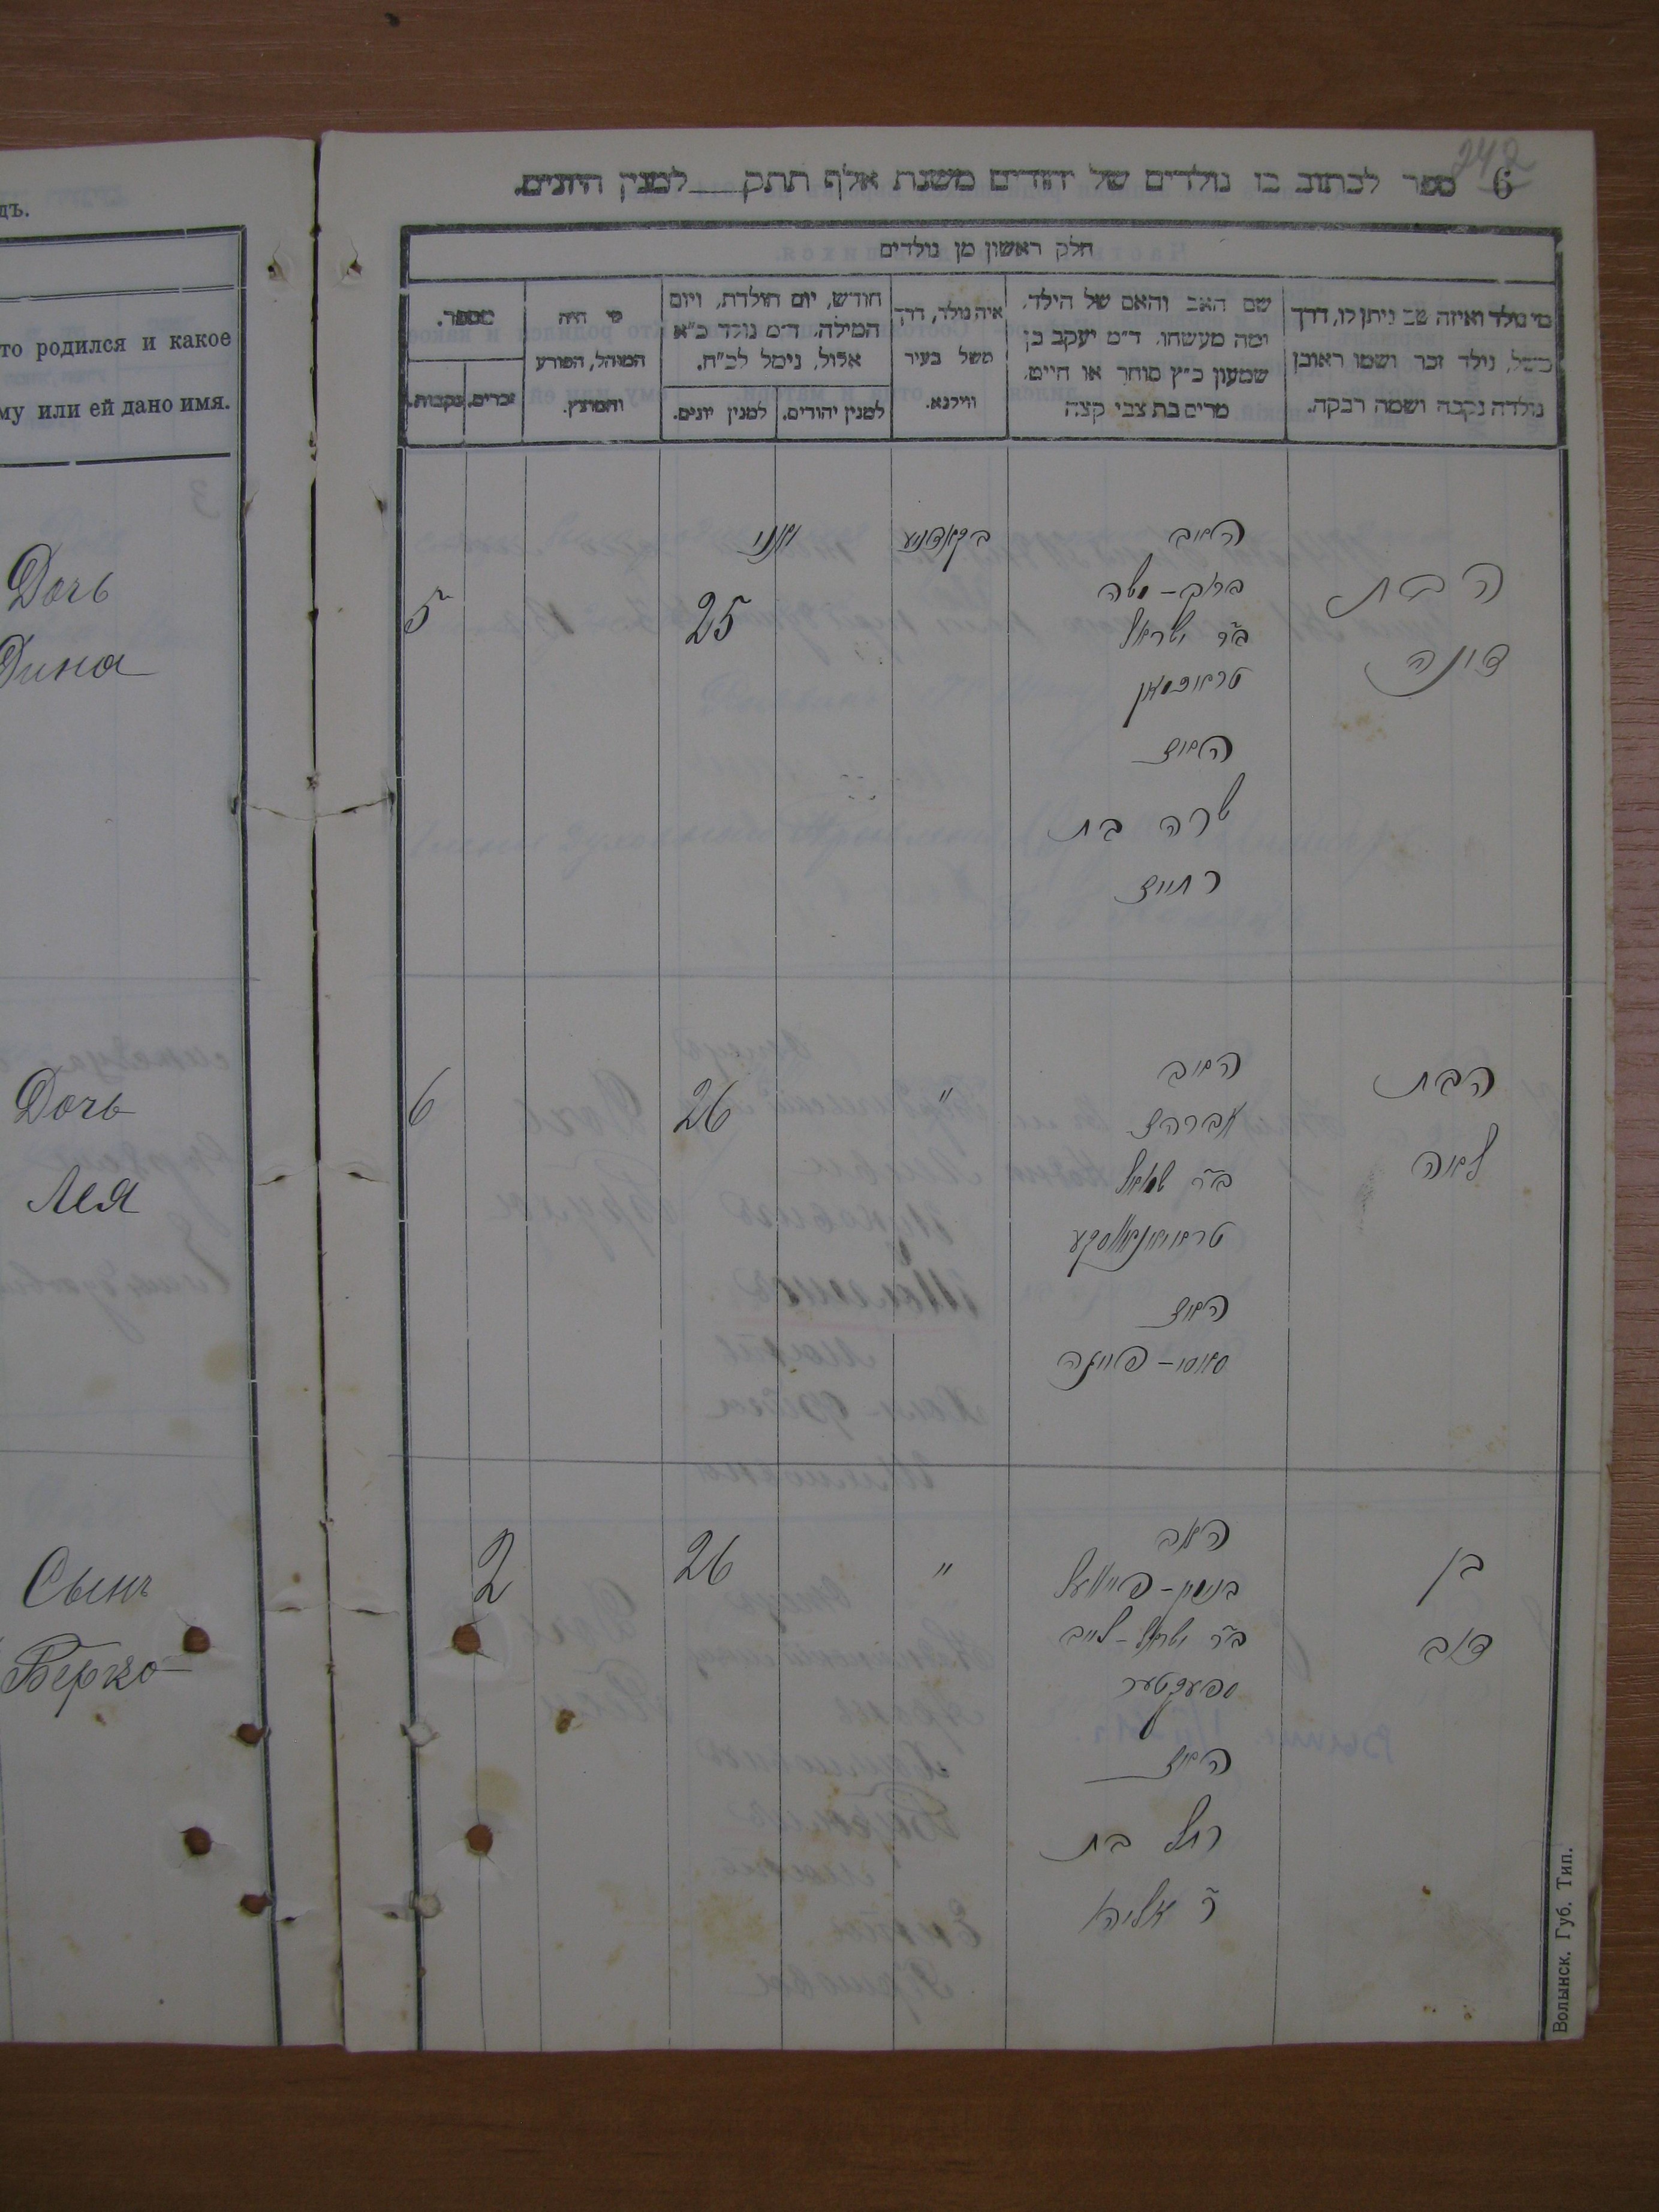 дъ.
то родился и какое
му или ей дано имя.
Дочь
Дина
Дочь
Лея
Сынъ
Берко
242
6 ספר לכתוב בו נולדים של יהודים משנת אלף תתק למנין היונים.
חלק ראשון מן נולדים
מי נולד ואיזה שם ניתן לו, דרך
משל, נולד זכר ושמו ראובן
נולדה נקבה ושמה רבקה.
שם האב והאם של הילד,
ומה מעשהו. ד״מ יעקב בן
שמעון כ״ץ סוחר או חייט,
מרים בת צבי קצה
איה נולד, דרך
משל בעיר
ווילנא.
חודש, יום הולדת, ויום
המילה. ד״מ נולד כ״א
אלול, נימל לכ״ח.
למנין יהודים.
למנין יונים.
מי היה
המוהל, הפורע
והמוצץ.
מספר.
זכרים.
נקבות.
הבת
דינה
האב
ברוך - משה
ב״ר ישראל
האם
שרה בת
ר חיים
יוני
25
5
הבת
לאה
האב
אברהם
ב״ר שמואל
האם
"
26
6
בן
דוב
האב
ב״ר ישראל - לייב
ספעקטער
האם
רחל בת
ר אליהו
"
26
2
Волынск. Губ. Тип.